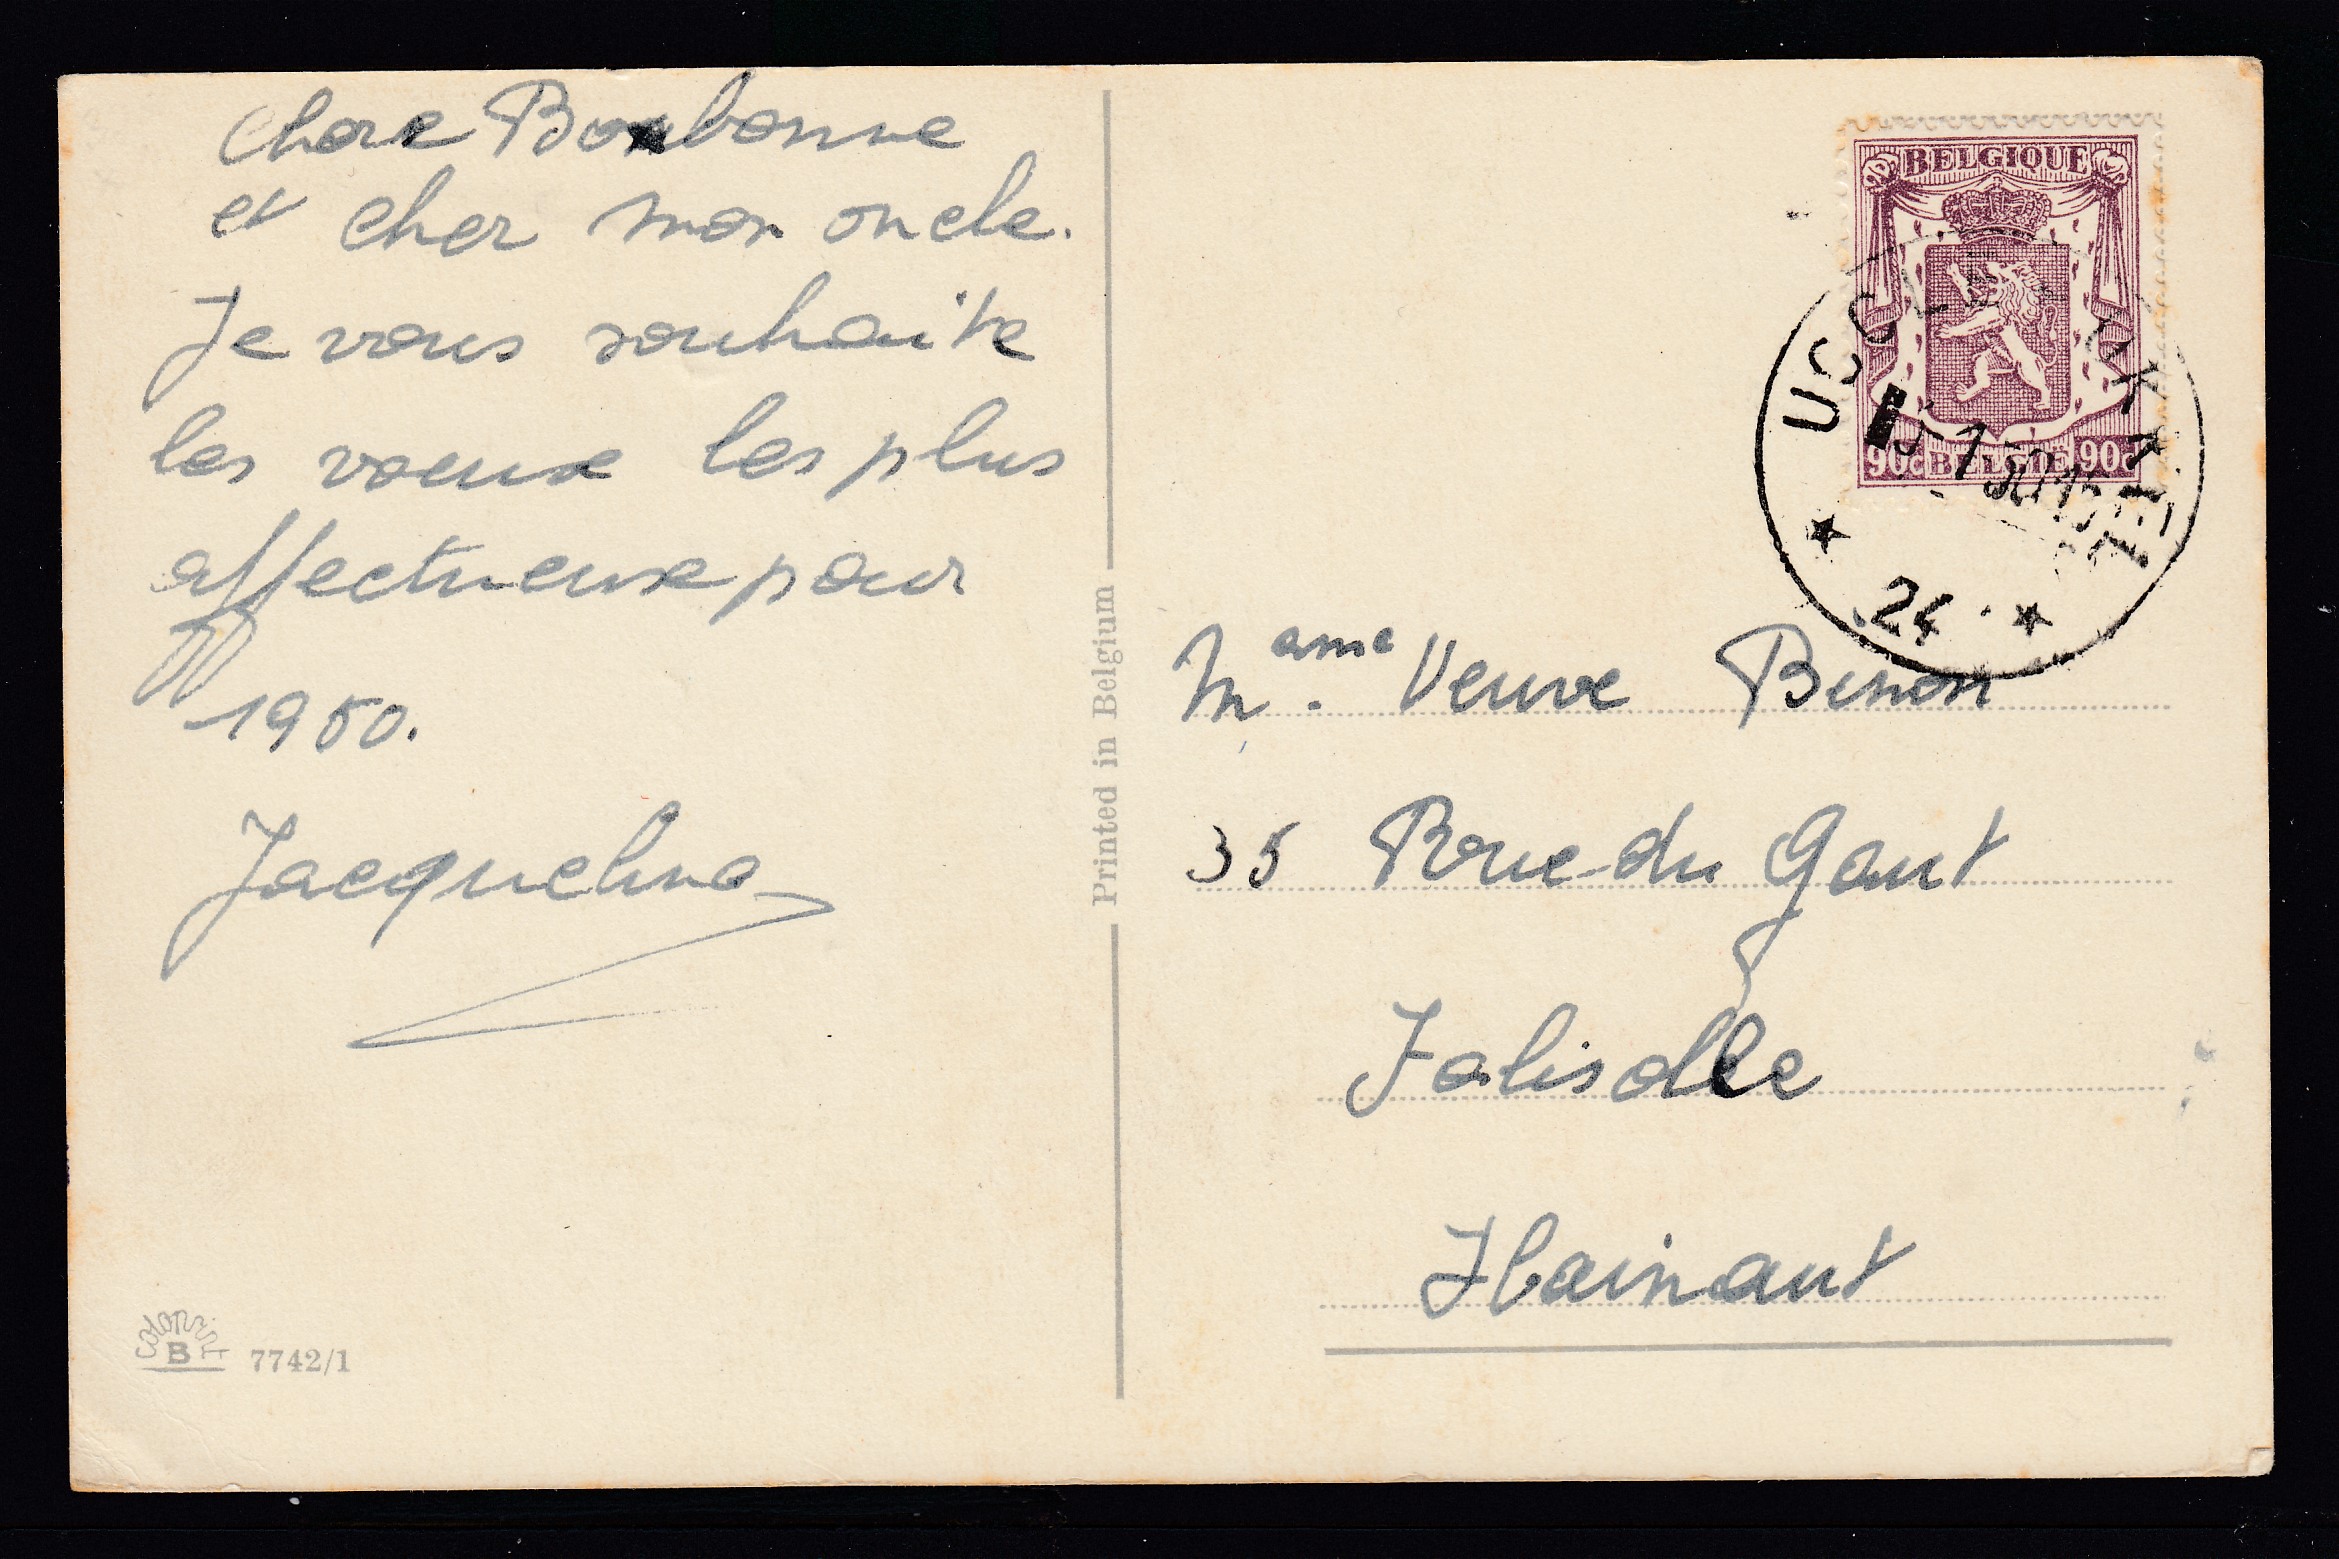 Chere Bonbonne
et cher mon oncle.
Je vous souhaite
les voeux les plus
affectueuse pour
1950.
Jacqueline
COLORPRINT
B
7742/1
Printed in Belgium
BELGIQUE
90c BELGIE 90c
UCCLE UKKEL
5-1-50 15
24
Mame. Veuve Binon
35 Rue du Gaut
Jolisolle
Hainaut